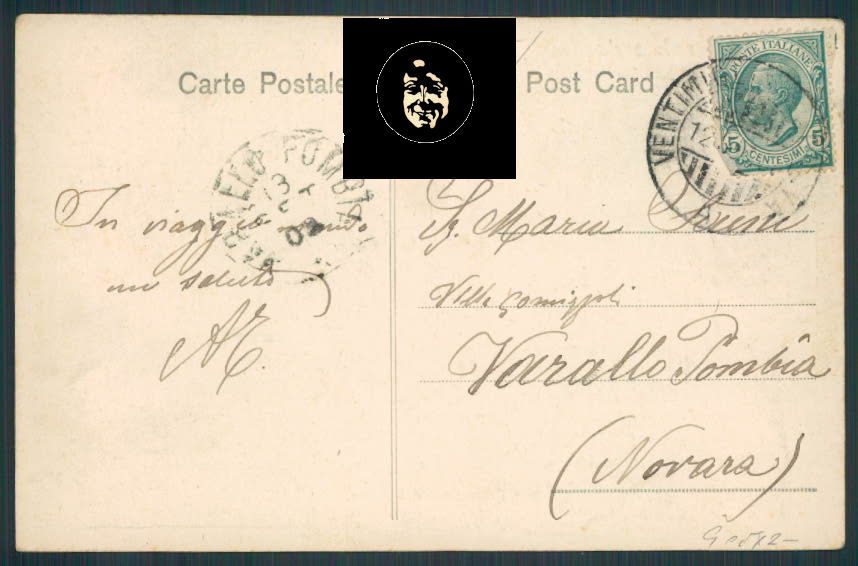 Carte Postale
Post Card
POSTE ITALIANE
5 5
CENTESIMI
VENTIMI
12
VARALLO POMBIA
13
09
In viaggio mando
un saluto
AE.
Sg. Maria
Villa
Varallo Pombia
(Novara)